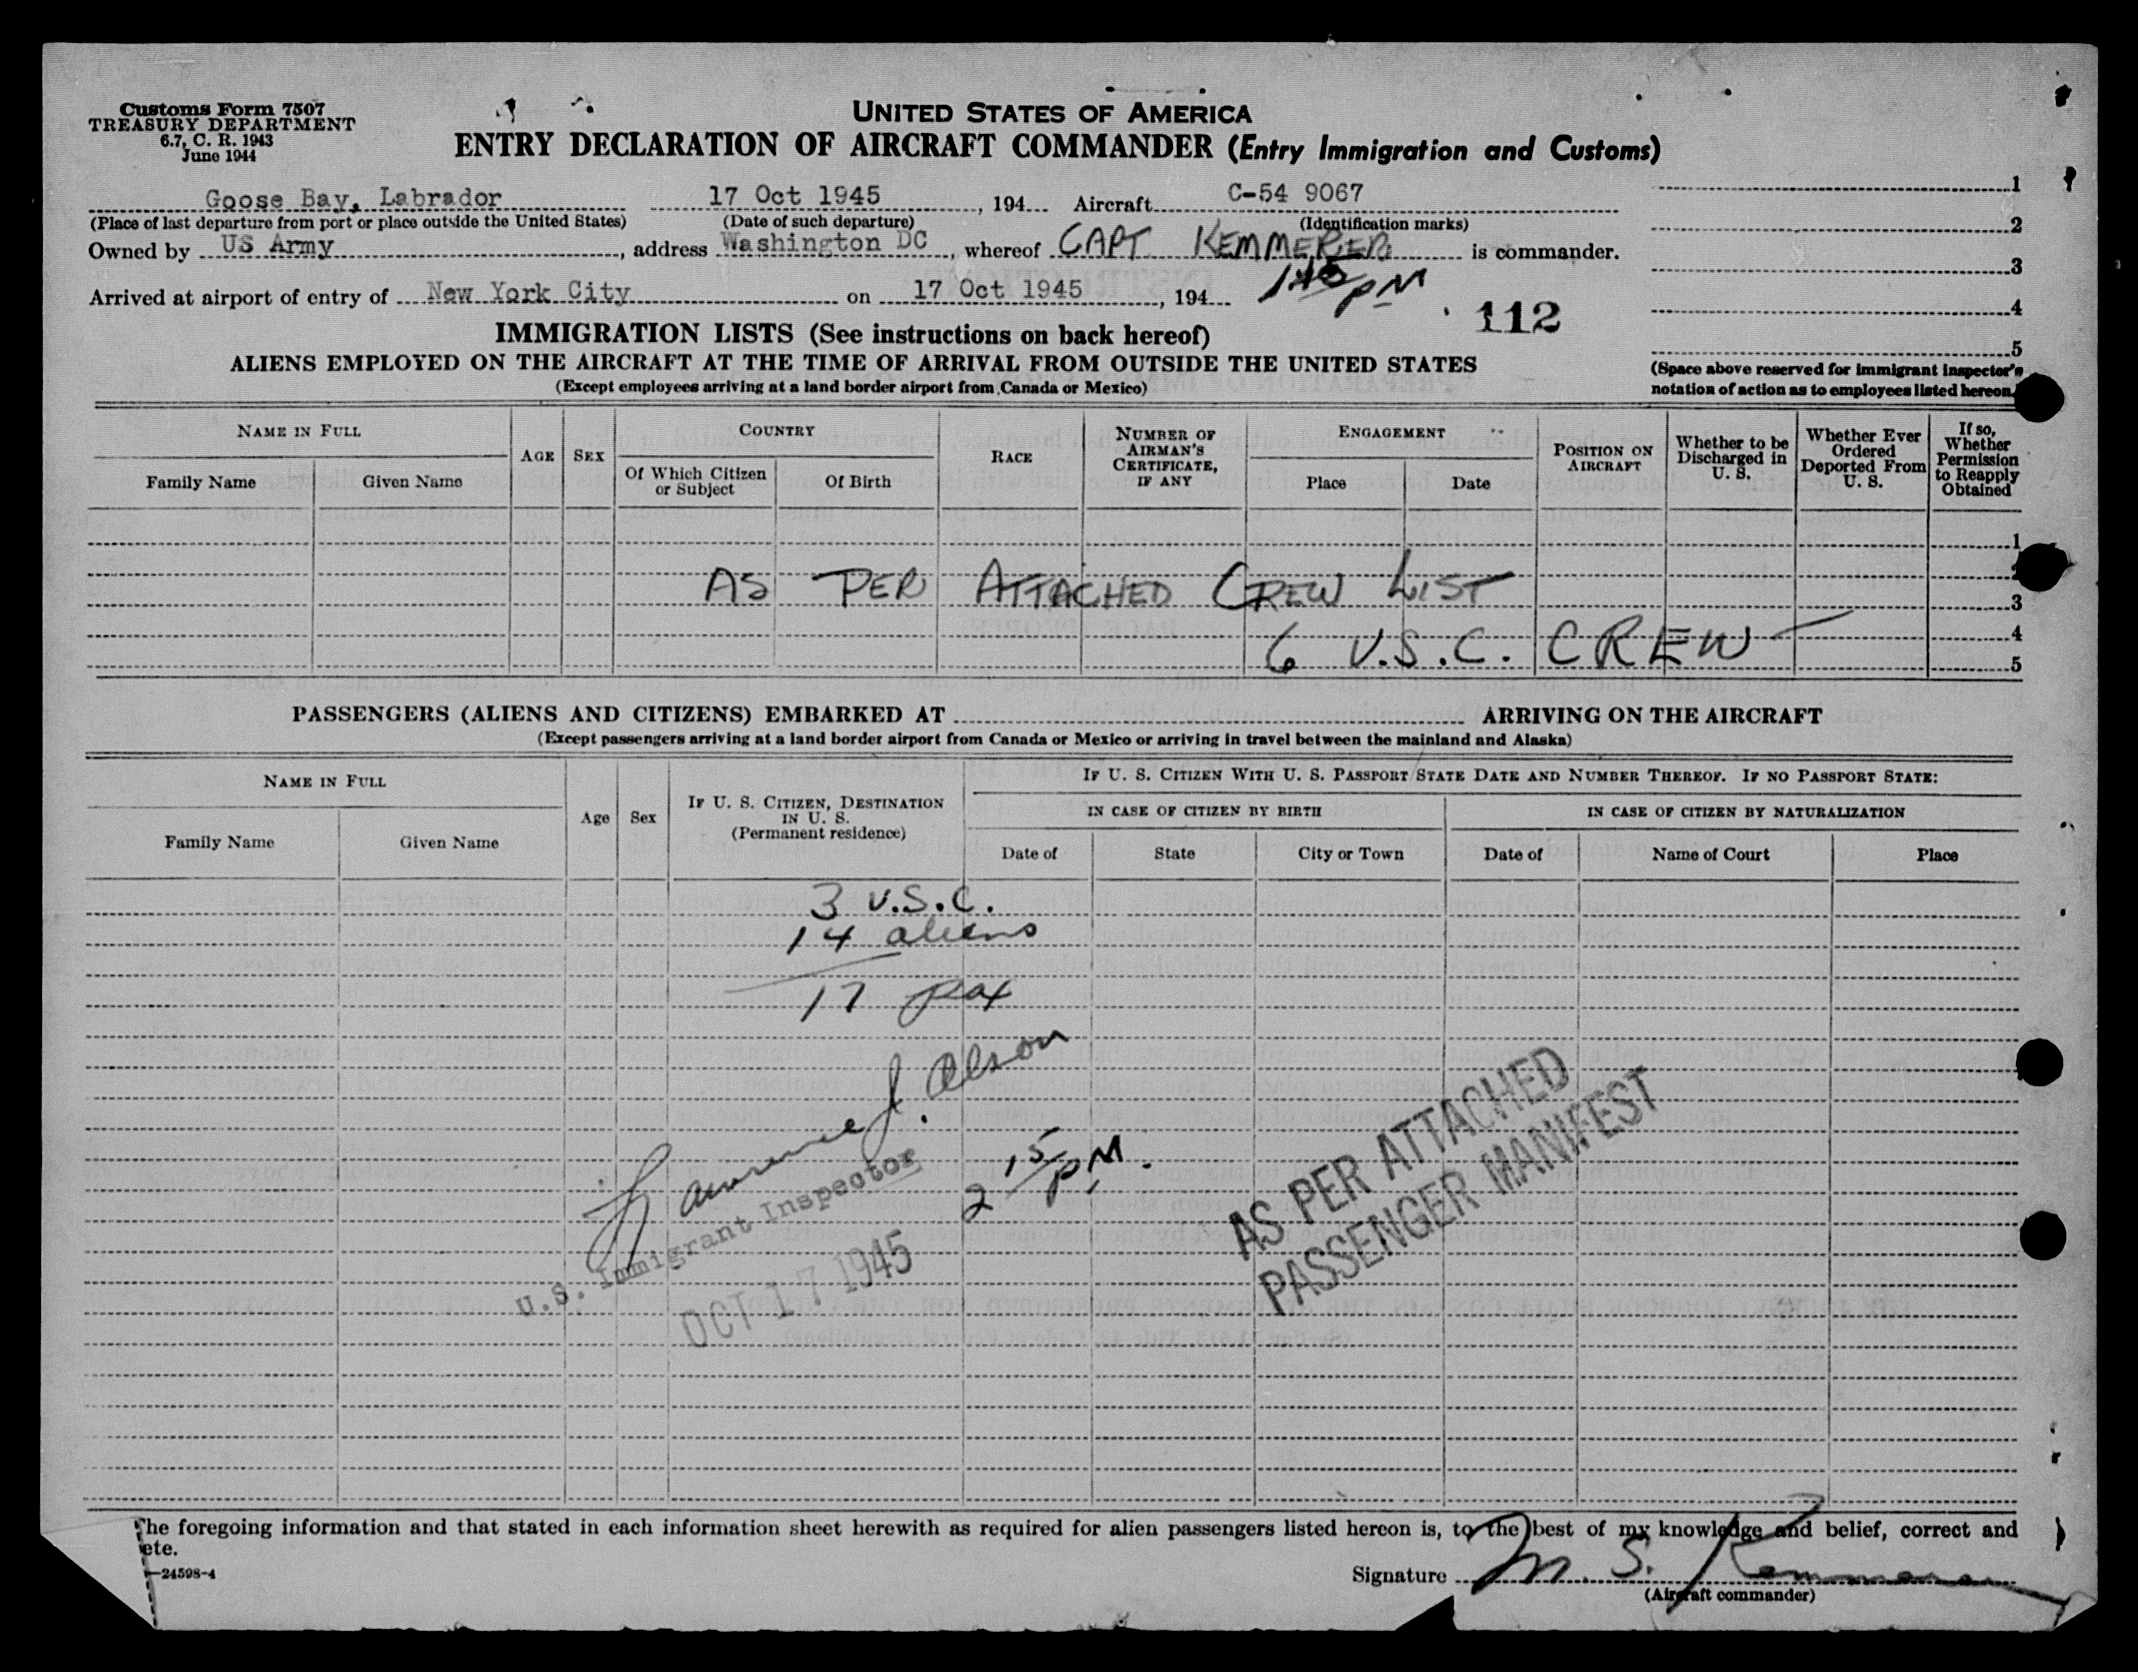 Customs Form 7507
TREASURY DEPARTMENT
6.7, C. R. 1943
June 1944
UNITED STATES OF AMERICA
ENTRY DECLARATION OF AIRCRAFT COMMANDER (Entry Immigration and Customs)
Goose Bay, Labrador 17 Oct 1945, 194 Aircraft C-54 9067
(Place of last departure from port or place outside the United States) (Date of such departure) (Identification marks)
Owned by US Army, address Washington DC, whereof CAPT KEMMERER is commander.
Arrived at airport of entry of New York City on 17 Oct 1945, 194 PM
112
1
2
3
4
5
(Space above reserved for immigrant inspector's
notation of action as to employees listed hereon.)
IMMIGRATION LISTS (See instructions on back hereof)
ALIENS EMPLOYED ON THE AIRCRAFT AT THE TIME OF ARRIVAL FROM OUTSIDE THE UNITED STATES
(Except employees arriving at a land border airport from Canada or Mexico)
NAME IN FULL
Family Name Given Name
AGE SEX
COUNTRY
Of Which Citizen or Subject
Of Birth
RACE
NUMBER OF AIRMAN'S CERTIFICATE, IF ANY
ENGAGEMENT
Place Date
POSITION ON AIRCRAFT
Whether to be Discharged in U. S.
Whether Ever Ordered Deported From U. S.
If so, Whether Permission to Reapply Obtained
1
2
AS PER ATTACHED CREW LIST
3
6 U.S.C. CREW
4
5
PASSENGERS (ALIENS AND CITIZENS) EMBARKED AT ARRIVING ON THE AIRCRAFT
(Except passengers arriving at a land border airport from Canada or Mexico or arriving in travel between the mainland and Alaska)
NAME IN FULL
Family Name Given Name
Age Sex
IF U. S. CITIZEN, DESTINATION
IN U. S.
(Permanent residence)
IF U. S. CITIZEN WITH U. S. PASSPORT STATE DATE AND NUMBER THEREOF. IF NO PASSPORT STATE:
IN CASE OF CITIZEN BY BIRTH IN CASE OF CITIZEN BY NATURALIZATION
Date of State City or Town Date of Name of Court Place
3 U.S.C.
14 aliens
17 pax
Lawrence J. Olson
U.S. Immigrant Inspector
2 15 PM.
OCT 17 1945
AS PER ATTACHED
PASSENGER MANIFEST
The foregoing information and that stated in each information sheet herewith as required for alien passengers listed hereon is, to the best of my knowledge and belief, correct and
ete.
—24598-4
Signature M. S. Kemmerer
(Aircraft commander)